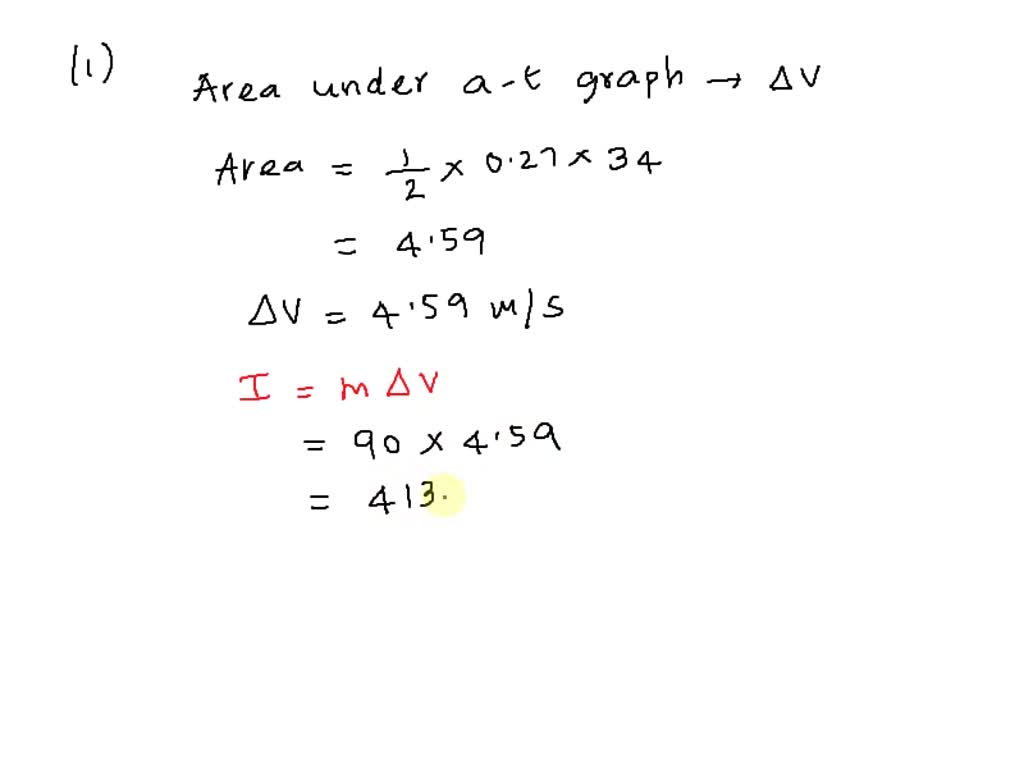 (1)
Area under a-t graph → ΔV
Area = 1/2 × 0.27 × 34
= 4.59
ΔV = 4.59 m/s
I = m ΔV
= 90 × 4.59
= 413.